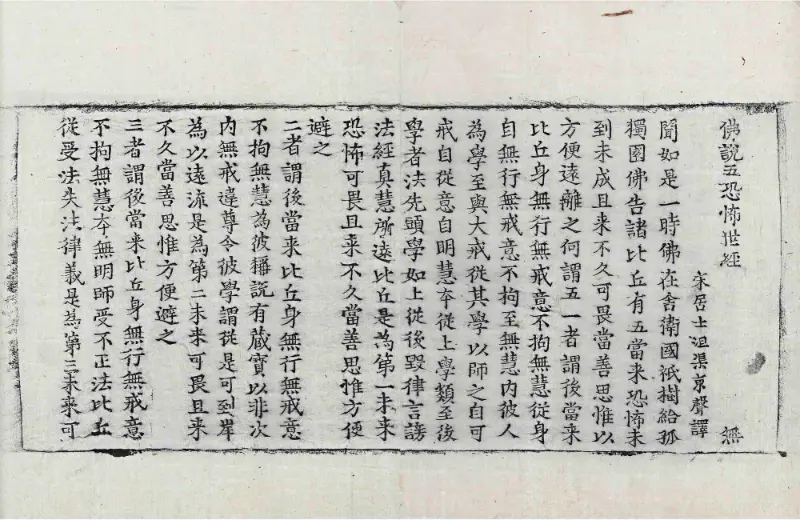 佛說五恐怖世經
宋居士沮渠京聲譯 無
聞如是一時佛在舍衛國祇樹給孤
獨園佛告諸比丘有五當来恐怖未
到未成且来不久可畏當善思惟以
方便遠離之何謂五一者謂後當来
比丘身無行無戒意不拘無慧従身
自無行無戒意不拘至無慧内彼人
為學至與大戒従其學以師之自可
戒自從意自明慧夲従上學類至後
學者法先頭學如上従後毀律言謗
法經真慧所遠比丘是為第一未来
恐怖可畏且来不久當善思惟方便
避之
二者謂後當来比丘身無行無戒意
不拘無慧為彼稱說有蔵寶以非次
内無戒違尊令彼學謂従是可到岸
為以遠流是為第二未来可畏且来
不久當善思惟方便避之
三者謂後當来比丘身無行無戒意
不拘無慧夲無明師受不正法比丘
從受法失法律義是為第三未来可